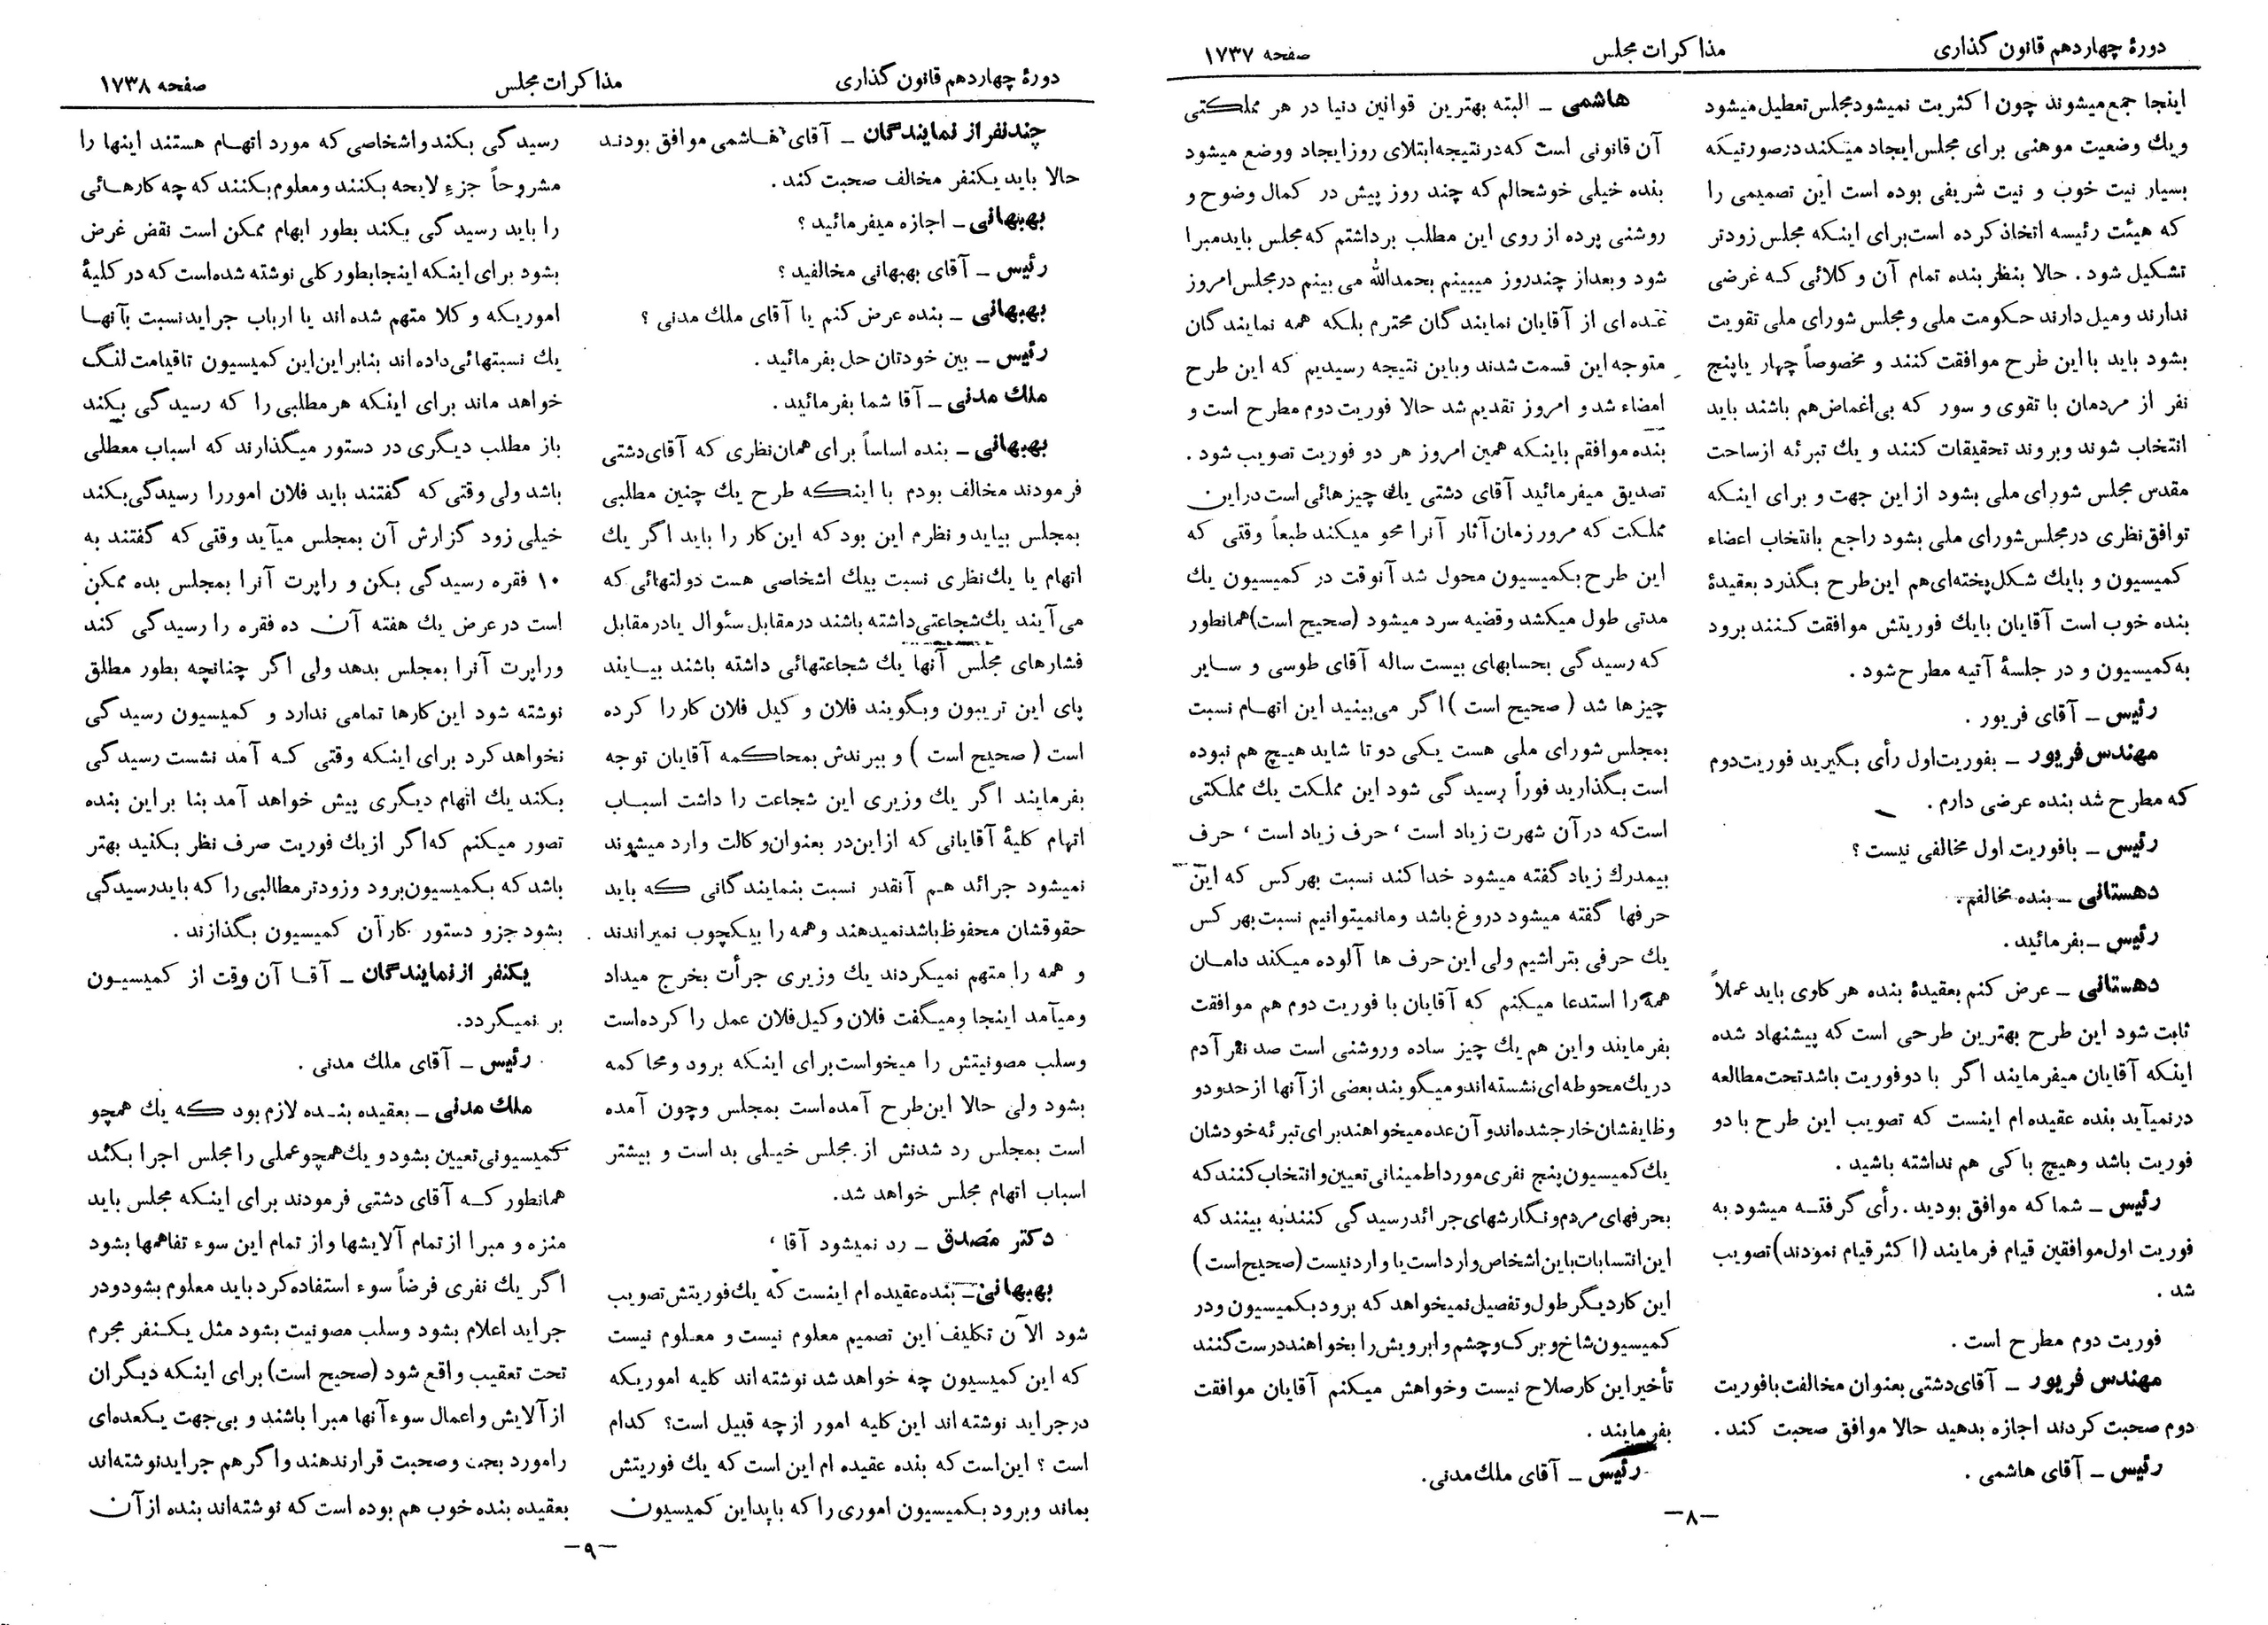 دورهٔ چهاردهم قانون گذاری
مذاکرات مجلس
صفحه ۱۷۳۷
اینجا جمع میشوند چون اکثریت نمیشود مجلس تعطیل میشود
ویك وضعیت موهنی برای مجلس ایجاد میکند درصورتیکه
بسیار نیت خوب و نیت شریفی بوده است این تصمیمی را
که هیئت رئیسه اتخاذ کرده است برای اینکه مجلس زودتر
تشکیل شود . حالا بنظر بنده تمام آن وکلائی کـه غرضی
ندارند ومیل دارند حکومت ملی ومجلس شورای ملی تقویت
بشود باید با این طرح موافقت کنند و مخصوصاً چهار یا پنج
نفر از مردمان با تقوی و سور که بی اغماض هم باشند باید
انتخاب شوند وبروند تحقیقات کنند و یك تبرئه ازساحت
مقدس مجلس شورای ملی بشود از این جهت و برای اینکه
توافق نظری درمجلس شورای ملی بشود راجع بانتخاب اعضاء
کمیسیون و بایك شکل پخته‌ای هم این طرح بگذرد بعقیدهٔ
بنده خوب است آقایان بایك فوریتش موافقت کنند برود
به کمیسیون و در جلسهٔ آتیه مطرح شود .
رئیس ـ آقای فریور .
مهندس فریور ـ بفوریت اول رأی بگیرید فوریت دوم
که مطرح شد بنده عرضی دارم .
رئیس ـ بافوریت اول مخالفی نیست ؟
دهستانی ـ بنده مخالفم .
رئیس ـ بفرمائید .
دهستانی ـ عرض کنم بعقیدهٔ بنده هر کاوی باید عملاً
ثابت شود این طرح بهترین طرحی است که پیشنهاد شده
اینکه آقایان میفرمایند اگر با دو فوریت باشد تحت مطالعه
درنمیآید بنده عقیده ام اینست که تصویب این طرح با دو
فوریت باشد وهیچ باکی هم نداشته باشید .
رئیس ـ شما که موافق بودید . رأی گرفتـه میشود به
فوریت اول موافقین قیام فرمایند (اکثر قیام نمودند) تصویب
شد .
فوریت دوم مطرح است .
مهندس فریور ـ آقای دشتی بعنوان مخالفت بافوریت
دوم صحبت کردند اجازه بدهید حالا موافق صحبت کند .
رئیس ـ آقای هاشمی .
هاشمی ـ البته بهترین قوانین دنیا در هر مملکتی
آن قانونی است که درنتیجه ابتلای روز ایجاد ووضع میشود
بنده خیلی خوشحالم که چند روز پیش در کمال وضوح و
روشنی پرده از روی این مطلب برداشتم که مجلس باید مبرا
شود وبعداز چندروز میبینم بحمدالله می بینم درمجلس امروز
عده ای از آقایان نمایندگان محترم بلکه همه نمایندگان
متوجه این قسمت شدند وباین نتیجه رسیدیم که این طرح
امضاء شد و امروز تقدیم شد حالا فوریت دوم مطرح است و
بنده موافقم باینکه همین امروز هر دو فوریت تصویب شود .
تصدیق میفرمائید آقای دشتی یك چیزهائی است در این
مملکت که مرور زمان آثار آنرا محو میکند طبعاً وقتی که
این طرح بکمیسیون محول شد آنوقت در کمیسیون یك
مدتی طول میکشد وقضیه سرد میشود (صحیح است) همانطور
که رسیدگی بحسابهای بیست ساله آقای طوسی و سـایر
چیزها شد ( صحیح است ) اگر می‌بینید این اتهـام نسبت
بمجلس شورای ملی هست یکی دوتا شاید هیـچ هم نبوده
است بگذارید فوراً رسیدگی شود این مملکت یك مملکتی
است که در آن شهرت زیاد است ، حرف زیاد است ، حرف
بیمدرك زیاد گفته میشود خدا کند نسبت بهرکس که این
حرفها گفته میشود دروغ باشد ومانمیتوانیم نسبت بهر کس
یك حرفی بتراشیم ولی این حرف ها آلوده میکند دامـان
همه را استدعا میکنم که آقایان با فوریت دوم هم موافقت
بفرمایند واین هم یك چیز ساده وروشنی است صد نفر آدم
دریك محوطه‌ای نشسته‌اند ومیگویند بعضی از آنها از حدود و
وظایفشان خارج شده‌اند و آن عده میخواهند برای تبرئه خودشان
یك کمیسیون پنج نفری مورد اطمینانی تعیین و انتخاب کنند که
بحرفهای مردم ونگارشهای جرائد رسیدگی کنند به بینند که
این انتسابات باین اشخاص وارد است یا وارد نیست (صحیح است)
این کار دیگر طول وتفصیل نمیخواهد که برود بکمیسیون ودر
کمیسیون شاخ و برك وچشم و ابرویش را بخواهند درست کنند
تأخیر این کار صلاح نیست وخواهش میکنم آقایان موافقت
بفرمایند .
رئیس ـ آقای ملك مدنی.
ـ۸ـ
دورهٔ چهاردهم قانون گذاری
مذاکرات مجلس
صفحه ۱۷۳۸
چندنفر از نمایندگان ـ آقای هـاشمی موافق بودنـد
حالا باید یکنفر مخالف صحبت کند .
بهبهانی ـ اجازه میفرمائید ؟
رئیس ـ آقای بهبهانی مخالفید ؟
بهبهانی ـ بنده عرض کنم یا آقای ملك مدنی ؟
رئیس ـ بین خودتان حل بفرمائید .
ملك مدنی ـ آقا شما بفرمائید .
بهبهانی ـ بنده اساساً برای همان نظری که آقای دشتی
فرمودند مخالف بودم با اینکه طرح یك چنین مطلبی
بمجلس بیاید و نظرم این بود که این کار را باید اگر یك
اتهام یا یك نظری نسبت بیك اشخاصی هست دولتهائی که
می آیند یك شجاعتی داشته باشند درمقابل سئوال یا در مقابل
فشارهای مجلس آنها یك شجاعتهائی داشته باشند بیـایند
پای این تریبون وبگویند فلان وکیل فلان کار را کرده
است ( صحیح است ) و ببرندش بمحاکمه آقایان توجه
بفرمایند اگر یك وزیری این شجاعت را داشت اسبـاب
اتهام کلیهٔ آقایانی که از این در بعنوان وکالت وارد میشوند
نمیشود جرائد هـم آنقدر نسبت بنمایندگانی که باید
حقوقشان محفوظ باشد نمیدهند وهمه را بیکچوب نمیراندند
و همه را متهم نمیکردند یك وزیری جرأت بخرج میداد
ومیآمد اینجا ومیگفت فلان وکیل فلان عمل را کرده است
وسلب مصونیتش را میخواست برای اینکه برود ومحاکمه
بشود ولی حالا این طرح آمده است بمجلس وچون آمده
است بمجلس رد شدنش از مجلس خیـلی بد است و بیشتر
اسباب اتهام مجلس خواهد شد.
دکتر مصدق ـ رد نمیشود آقا ،
بهبهانی ـ بنده عقیده ام اینست که یك فوریتش تصویب
شود الآن تکلیف این تصمیم معلوم نیست و معـلوم نیست
که این کمیسیون چه خواهد شد نوشته اند کلیه اموریکه
درجراید نوشته اند این کلیه امور ازچه قبیل است؟ کدام
است ؟ این است که بنده عقیده ام این است که یك فوریتش
بماند وبرود بکمیسیون اموری را که باید این کمیسیون
رسیدگی بکند واشخاصی که مورد اتهـام هستند اینها را
مشروحاً جزء لایحه بکنند ومعلوم بکنند که چه کارهـائی
را باید رسیدگی بکند بطور ابهام ممکن است نقض غرض
بشود برای اینکه اینجا بطور کلی نوشته شده است که در کلیهٔ
اموریکه وکلا متهم شده اند یا ارباب جراید نسبت بآنهـا
یك نسبتهائی داده اند بنابر این این کمیسیون تاقیامت لنگ
خواهد ماند برای اینکه هرمطلبی را که رسیدگی بکند
باز مطلب دیگری در دستور میگذارند که اسباب معطلی
باشد ولی وقتی که گفتند باید فلان امور را رسیدگی بکند
خیلی زود گزارش آن بمجلس میآید وقتی که گفتند به
۱۰ فقره رسیدگی بکن و راپرت آنرا بمجلس بده ممکن
است در عرض یك هفته آن ده فقره را رسیدگی کند
وراپرت آنرا بمجلس بدهد ولی اگر چنانچه بطور مطلق
نوشته شود این کارها تمامی ندارد و کمیسیون رسیدگی
نخواهد کرد برای اینکه وقتی کـه آمد نشست رسیدگی
بکند یك اتهام دیگری پیش خواهد آمد بنا بر این بنده
تصور میکنم که اگر از یك فوریت صرف نظر بکنید بهتر
باشد که بکمیسیون برود وزودتر مطالبی را که باید رسیدگی
بشود جزو دستور کار آن کمیسیون بگذازند .
یکنفر از نمایندگان ـ آقـا آن وقت از کمیسیـون
بر نمیگردد.
رئیس ـ آقای ملك مدنی .
ملك مدنی ـ بعقیده بنـده لازم بود که یك همچو
کمیسیونی تعیین بشود ویك همچو عملی را مجلس اجرا بکند
همانطور کـه آقای دشتی فرمودند برای اینکه مجلس باید
منزه و مبرا از تمام آلایشها واز تمام این سوء تفاهمها بشود
اگر یك نفری فرضاً سوء استفاده کرد باید معلوم بشود ودر
جراید اعلام بشود وسلب مصونیت بشود مثل یکـنفر مجرم
تحت تعقیب واقع شود (صحیح است) برای اینکه دیگران
از آلایش واعمال سوء آنها مبرا باشند و بی جهت یکعده‌ای
رامورد بحث وصحبت قرار ندهند واگر هم جراید نوشته‌اند
بعقیده بنده خوب هم بوده است که نوشته‌اند بنده از آن
ـ۹ـ